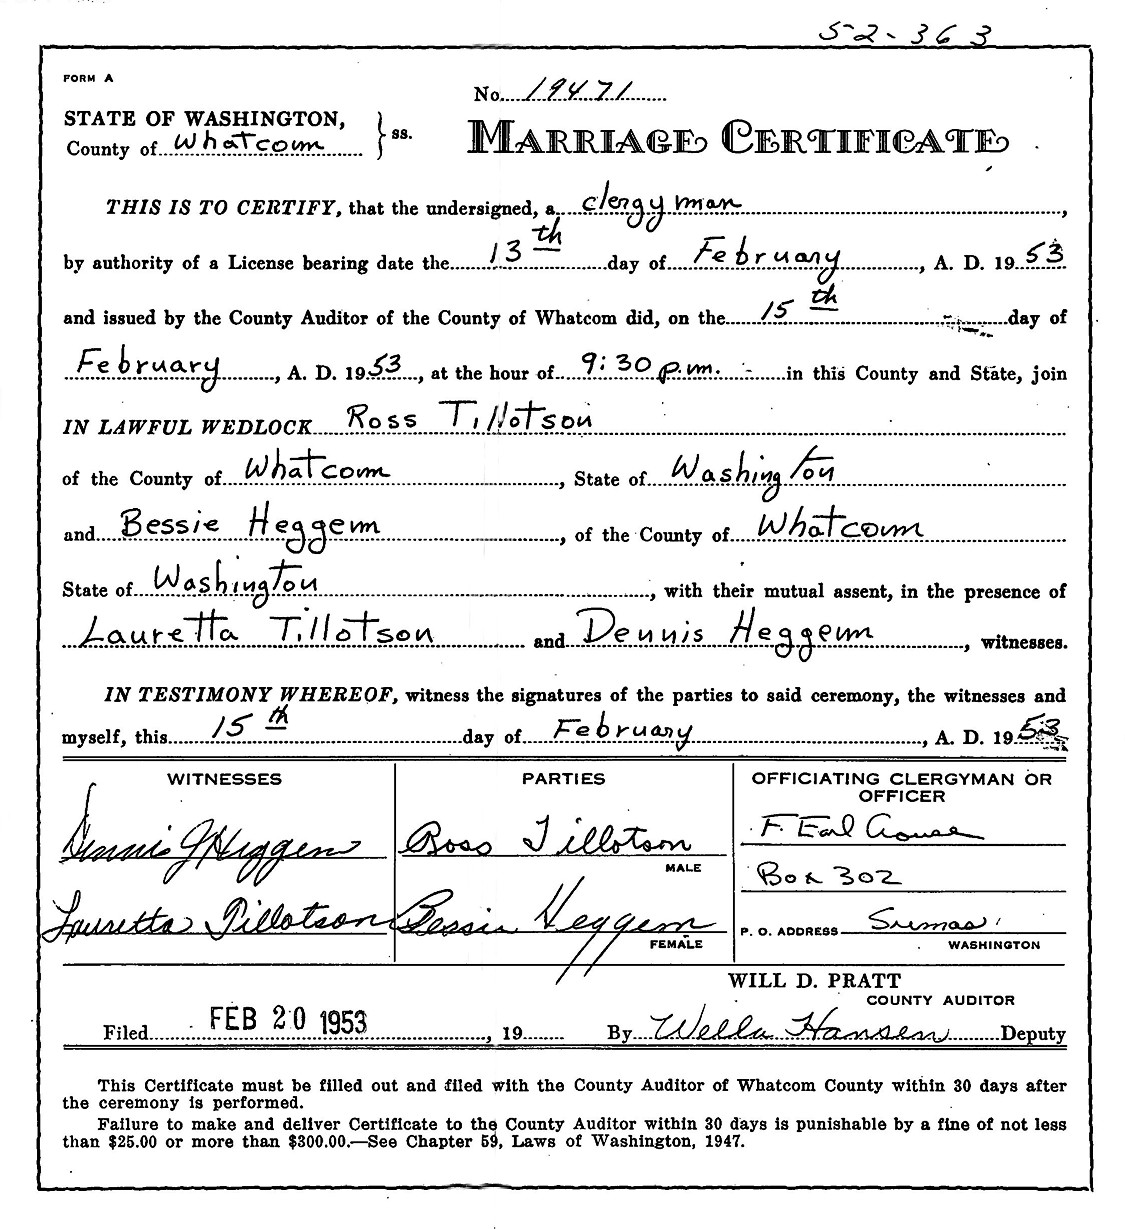 52-363
FORM A
No. 19471
STATE OF WASHINGTON,
County of Whatcom } ss.
MARRIAGE CERTIFICATE
THIS IS TO CERTIFY, that the undersigned, a clergyman,
by authority of a License bearing date the 13th day of February, A. D. 1953
and issued by the County Auditor of the County of Whatcom did, on the 15th day of
February, A. D. 1953, at the hour of 9:30 p.m. in this County and State, join
IN LAWFUL WEDLOCK Ross Tillotson
of the County of Whatcom, State of Washington
and Bessie Heggem, of the County of Whatcom
State of Washington, with their mutual assent, in the presence of
Lauretta Tillotson and Dennis Heggem, witnesses.
IN TESTIMONY WHEREOF, witness the signatures of the parties to said ceremony, the witnesses and
myself, this 15th day of February, A. D. 1953
WITNESSES
Dennis J Heggem
Lauretta Tillotson
PARTIES
Ross Tillotson
MALE
Bessie Heggem
FEMALE
OFFICIATING CLERGYMAN OR
OFFICER
F. Earl Crouse
Box 302
P. O. ADDRESS Sumas
WASHINGTON
WILL D. PRATT
COUNTY AUDITOR
Filed FEB 20 1953, 19 By Wella Hansen Deputy
This Certificate must be filled out and filed with the County Auditor of Whatcom County within 30 days after
the ceremony is performed.
Failure to make and deliver Certificate to the County Auditor within 30 days is punishable by a fine of not less
than $25.00 or more than $300.00.—See Chapter 59, Laws of Washington, 1947.